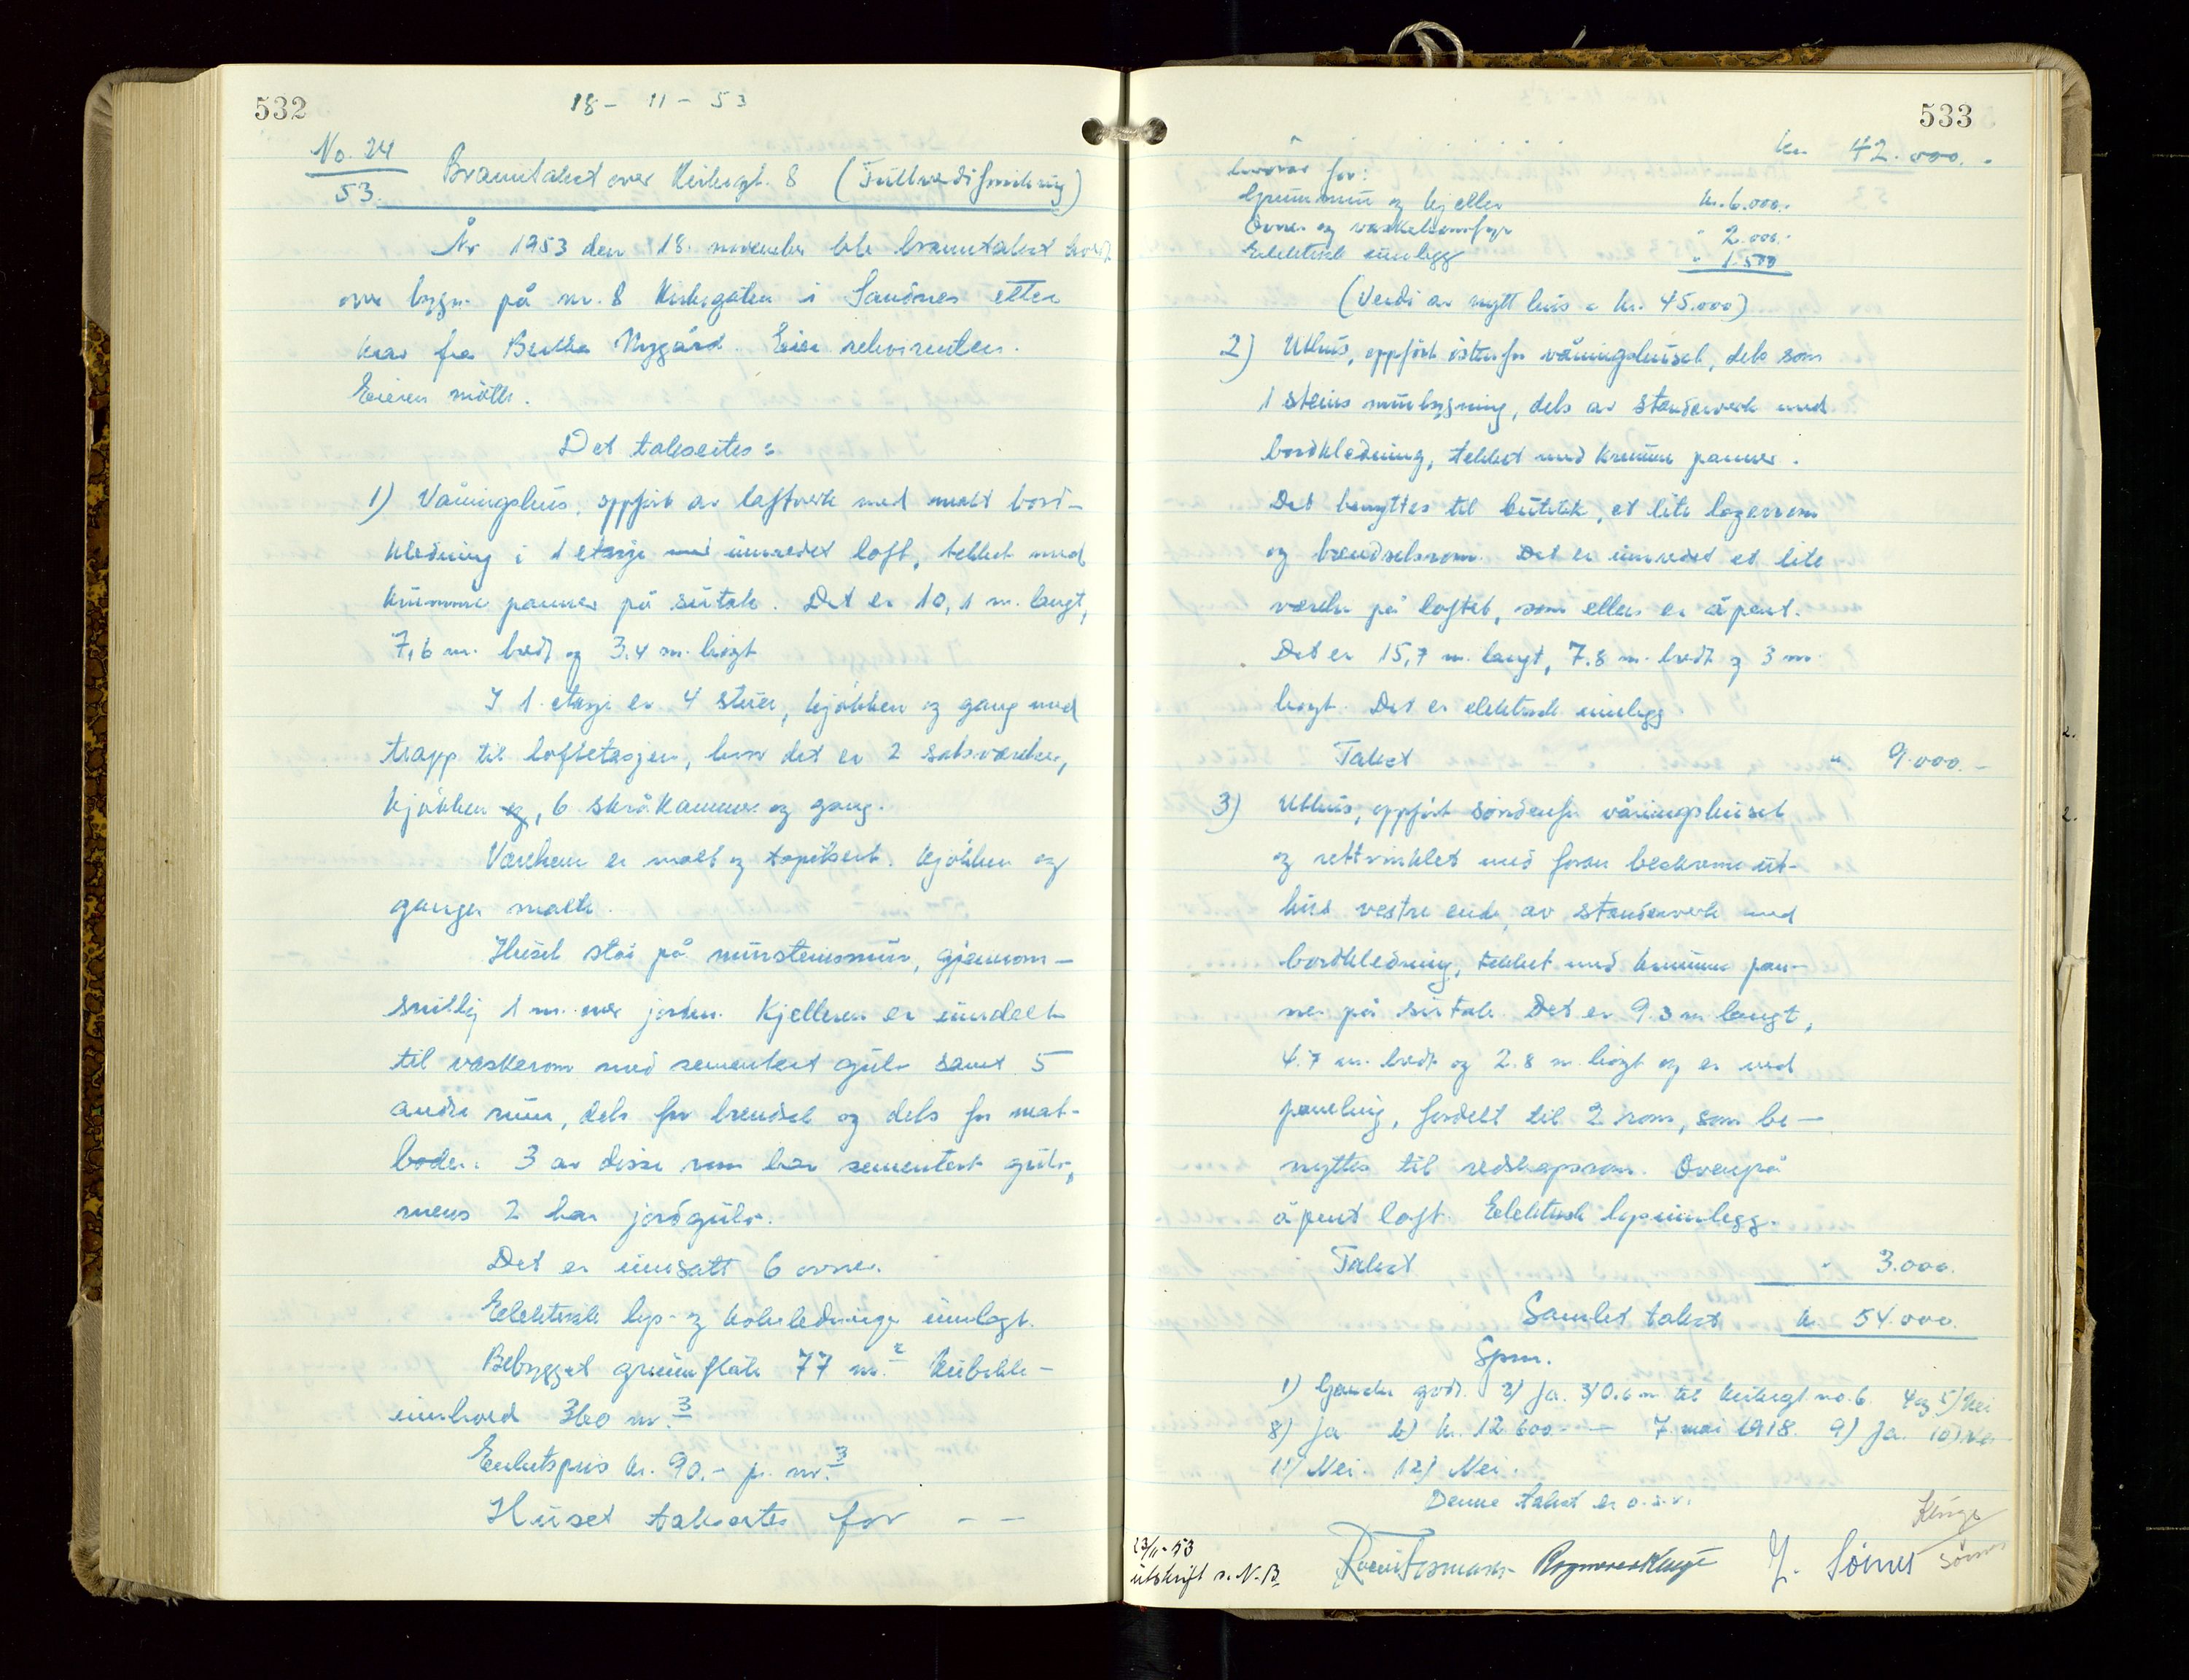 532
18 - 11 - 53
No. 24
53.
Branntakst over Kirkegt. 8 (Fullverdiforsikring)
År 1953 den 18. november ble branntakst holdt
over bygn. på nr. 8 Kirkegaten i Sandnes etter
krav fra Bertha Nygård. Eier rekvirenten.
Eieren møtte.
Det takseites:
1) Våningshus, oppført av laftverk med malt bord-
kledning i 1 etasje med innredet loft, tekket med
krumme panner på sutak. Det er 10,1 m. langt,
7,6 m. bredt og 3.4 m. høgt
I 1. etasje er 4 stuer, kjøkken og gang med
trapp til loftetasjen, hvor det er 2 salsværelser,
kjøkken og, 6 skråkammer og gang.
Værelsene er malt og tapetsert. Kjøkken og
ganger malte.
Huset står på mursteinsmur, gjennom-
snitlig 1 m. over jorden. Kjelleren er inndelt
til vaskerom med sementert gulv samt 5
andre rum, dels for brendsel og dels for mat-
boder. 3 av disse rum har sementert gulv,
mens 2 har jordgulv.
Det er innsatt 6 ovner.
Elektrisk lys- og kokeledninger innlagt.
Bebygget grunnflate 77 m.2 Kubikk-
innhold 360 m.3
Enhetspris kr. 90.- pr. m.3
Huset takseites for - -
533
kr. 42.000.-
hvorav for:
Grunnmur og kjeller kr. 6.000.-
Ovner og vaskekomfyr " 2.000.-
Elektrisk innlegg " 1.500
(Verdi av nytt hus = kr. 45.000)
2) Uthus, oppført østenfor våningshuset, dels som
1 steins murbygning, dels av stenderverk med
bordkledning, tekket med krumme panner.
Det benyttes til butikk, et lite lagerrom
og brendselsrom. Det er innredet et lite
værelse på loftet, som ellers er åpent.
Det er 15,7 m. langt, 7.8 m. bredt og 3 m.
høgt. Det er elektrisk innlegg
Takst " 9.000.-
3) Uthus, oppført sønnenfor våningshuset
og rettvinklet med foran beskrevne ut-
hus vestre ende, av stenderverk med
bordkledning, tekket med krumme pan-
ner på sutak. Det er 9.3 m langt,
4.7 m. bredt og 2.8 m. høgt og er ved
paneling, fordelt til 2 rom, som be-
nyttes til redskapsrom. Ovenpå
åpent loft. Elektrisk lysinnlegg.
Takst " 3.000.
Samlet takst kr. 54.000.
Spm.
1) Ganske godt. 2) Ja. 3) 0.6 m til Kirkegt no. 6. 4 og 5) Nei
8) Ja b) kr. 12.600.- - 7 mai 1918. 9) Ja. 10) Nei
11) Nei. 12) Nei.
Denne takst er o.s.v.
23/11-53
utskrift s. N.B.
J. Sømes
Klinge